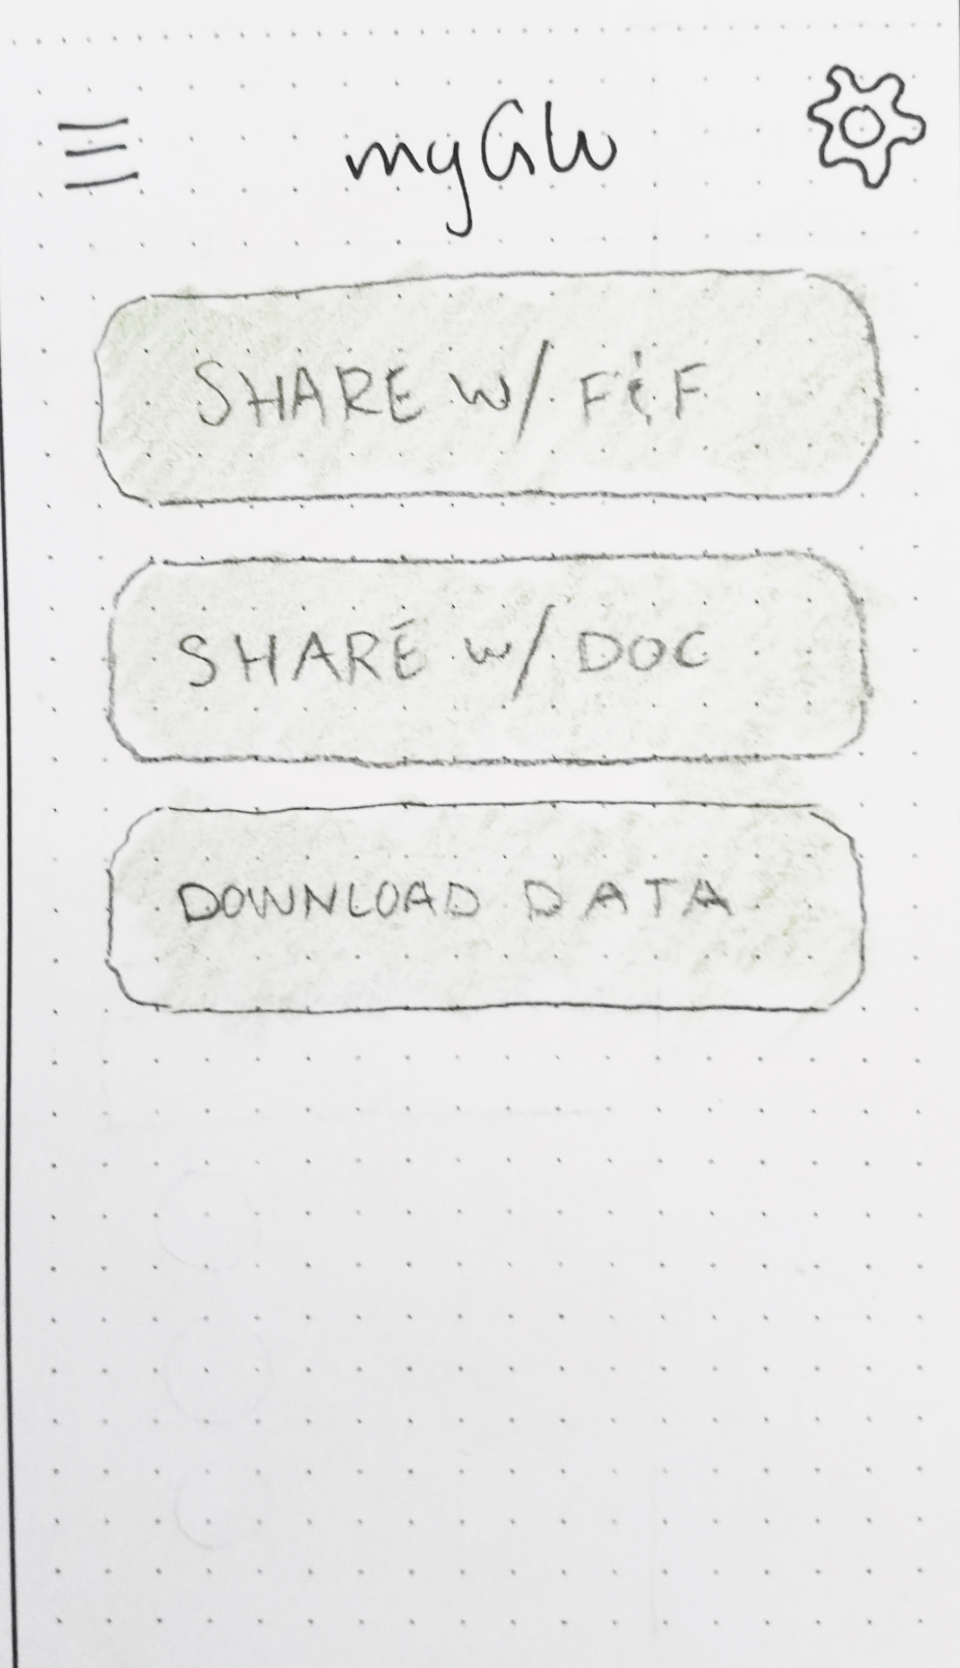 myGlu
SHARE W/ F&F
SHARE W/ DOC
DOWNLOAD DATA